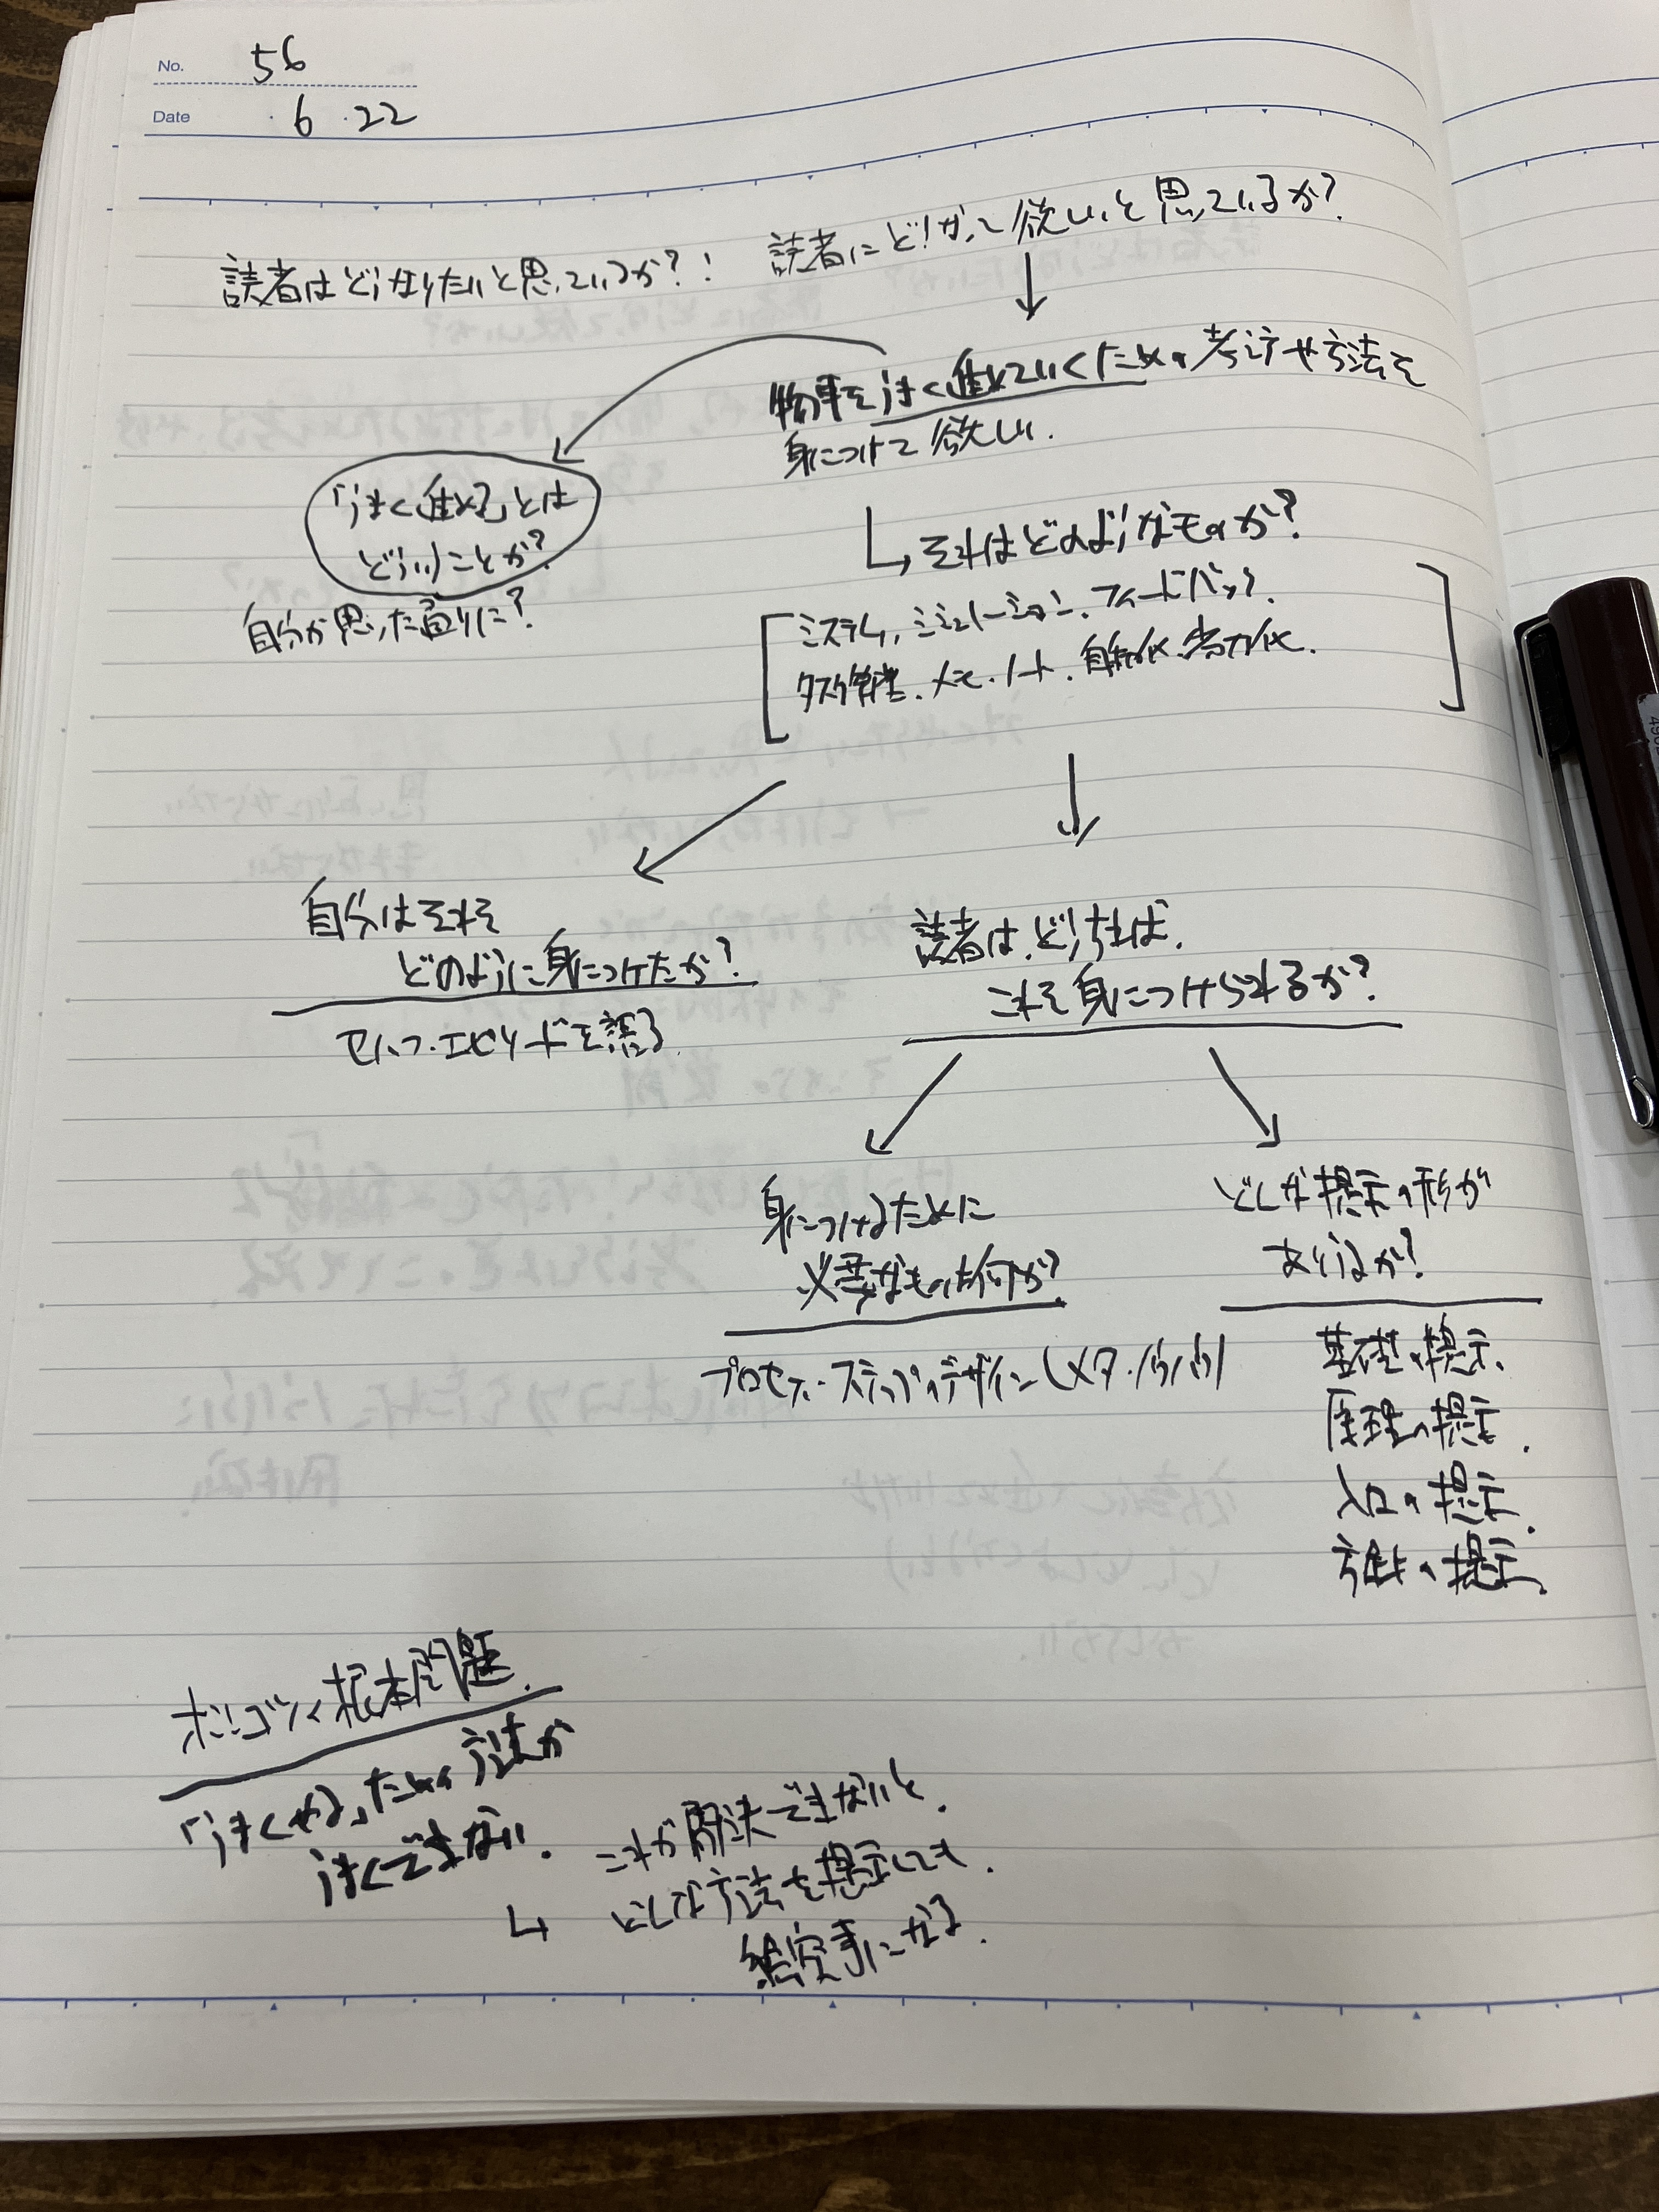 No. 56
Date ・6・22
読者はどうなりたいと思っているか?!
読者にどうなって欲しいと思っているか?
物事をうまく進めていくための考え方や方法を
身につけて欲しい.
「うまく進める」とは
どういうことか?
自分が思った通りに?
それはどのようなものか?
システム, シミュレーション, フィードバック.
タスク管理, メモ・ノート, 自動化・省力化.
自分はそれを
どのように身につけたか?
セルフ・エピソードを語る
読者は, どうすれば,
これを身につけられるか?
身につけるために
必要なものは何か?
プロセス・ステップのデザイン(メタ・
どんな提示の形が
ありうるか?
基礎の提示.
原理の提示.
入口の提示.
方法の提示.
根本問題.
「うまくやる」ための方法が
うまくできない.
これが解決できないと,
どんな方法を提示しても,
絵空事になる.